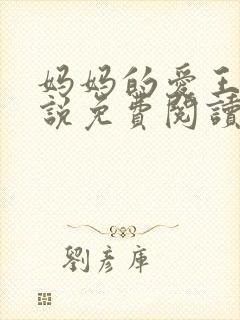 妈妈的愛王
說免費閱讀
劉彥庫